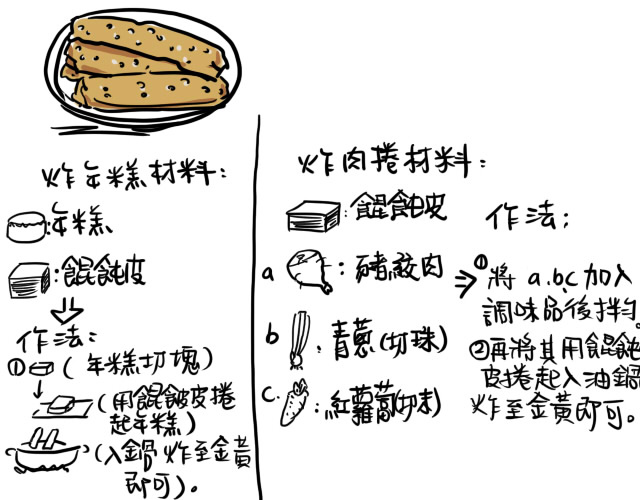 炸年糕材料:
:年糕、
:餛飩皮
作法:
①(年糕切塊)
(用餛飩皮捲
起年糕)
(入鍋炸至金黃
即可)。
炸肉捲材料:
:餛飩皮
a :豬絞肉
b :青蔥(切珠)
c. :紅蘿蔔(切末)
作法:
①將a.b.c加入
調味品後拌勻。
②再將其用餛飩
皮捲起入油鍋
炸至金黃即可。